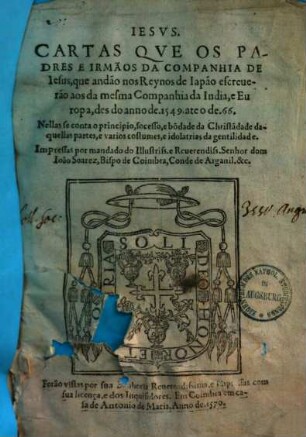 IESVS.
CARTAS QVE OS PA-
DRES E IRMÃOS DA COMPANHIA DE
Iesus, que andão nos Reynos de Iapão escreue-
rão aos da mesma Companhia da India, e Eu
ropa, des do anno de.1549. ate o de.66.
Nellas se conta o principio, socesso, e bõdade da Christãdade da-
quellas partes, e varios costumes, e idolatrias da gentilidade.
Impressas por mandado do Illustriss. e Reuerendiss. Senhor dom
Ioão Soarez, Bispo de Coimbra, Conde de Arganil. &c.
SOLI DEO HO ET RIA
Forão vistas por sua Senhoria Reuerendissima, e Impressas com
sua licença, e dos Inquisidores. Em Coimbra em ca-
sa de Antonio de Maris. Anno de.1570.